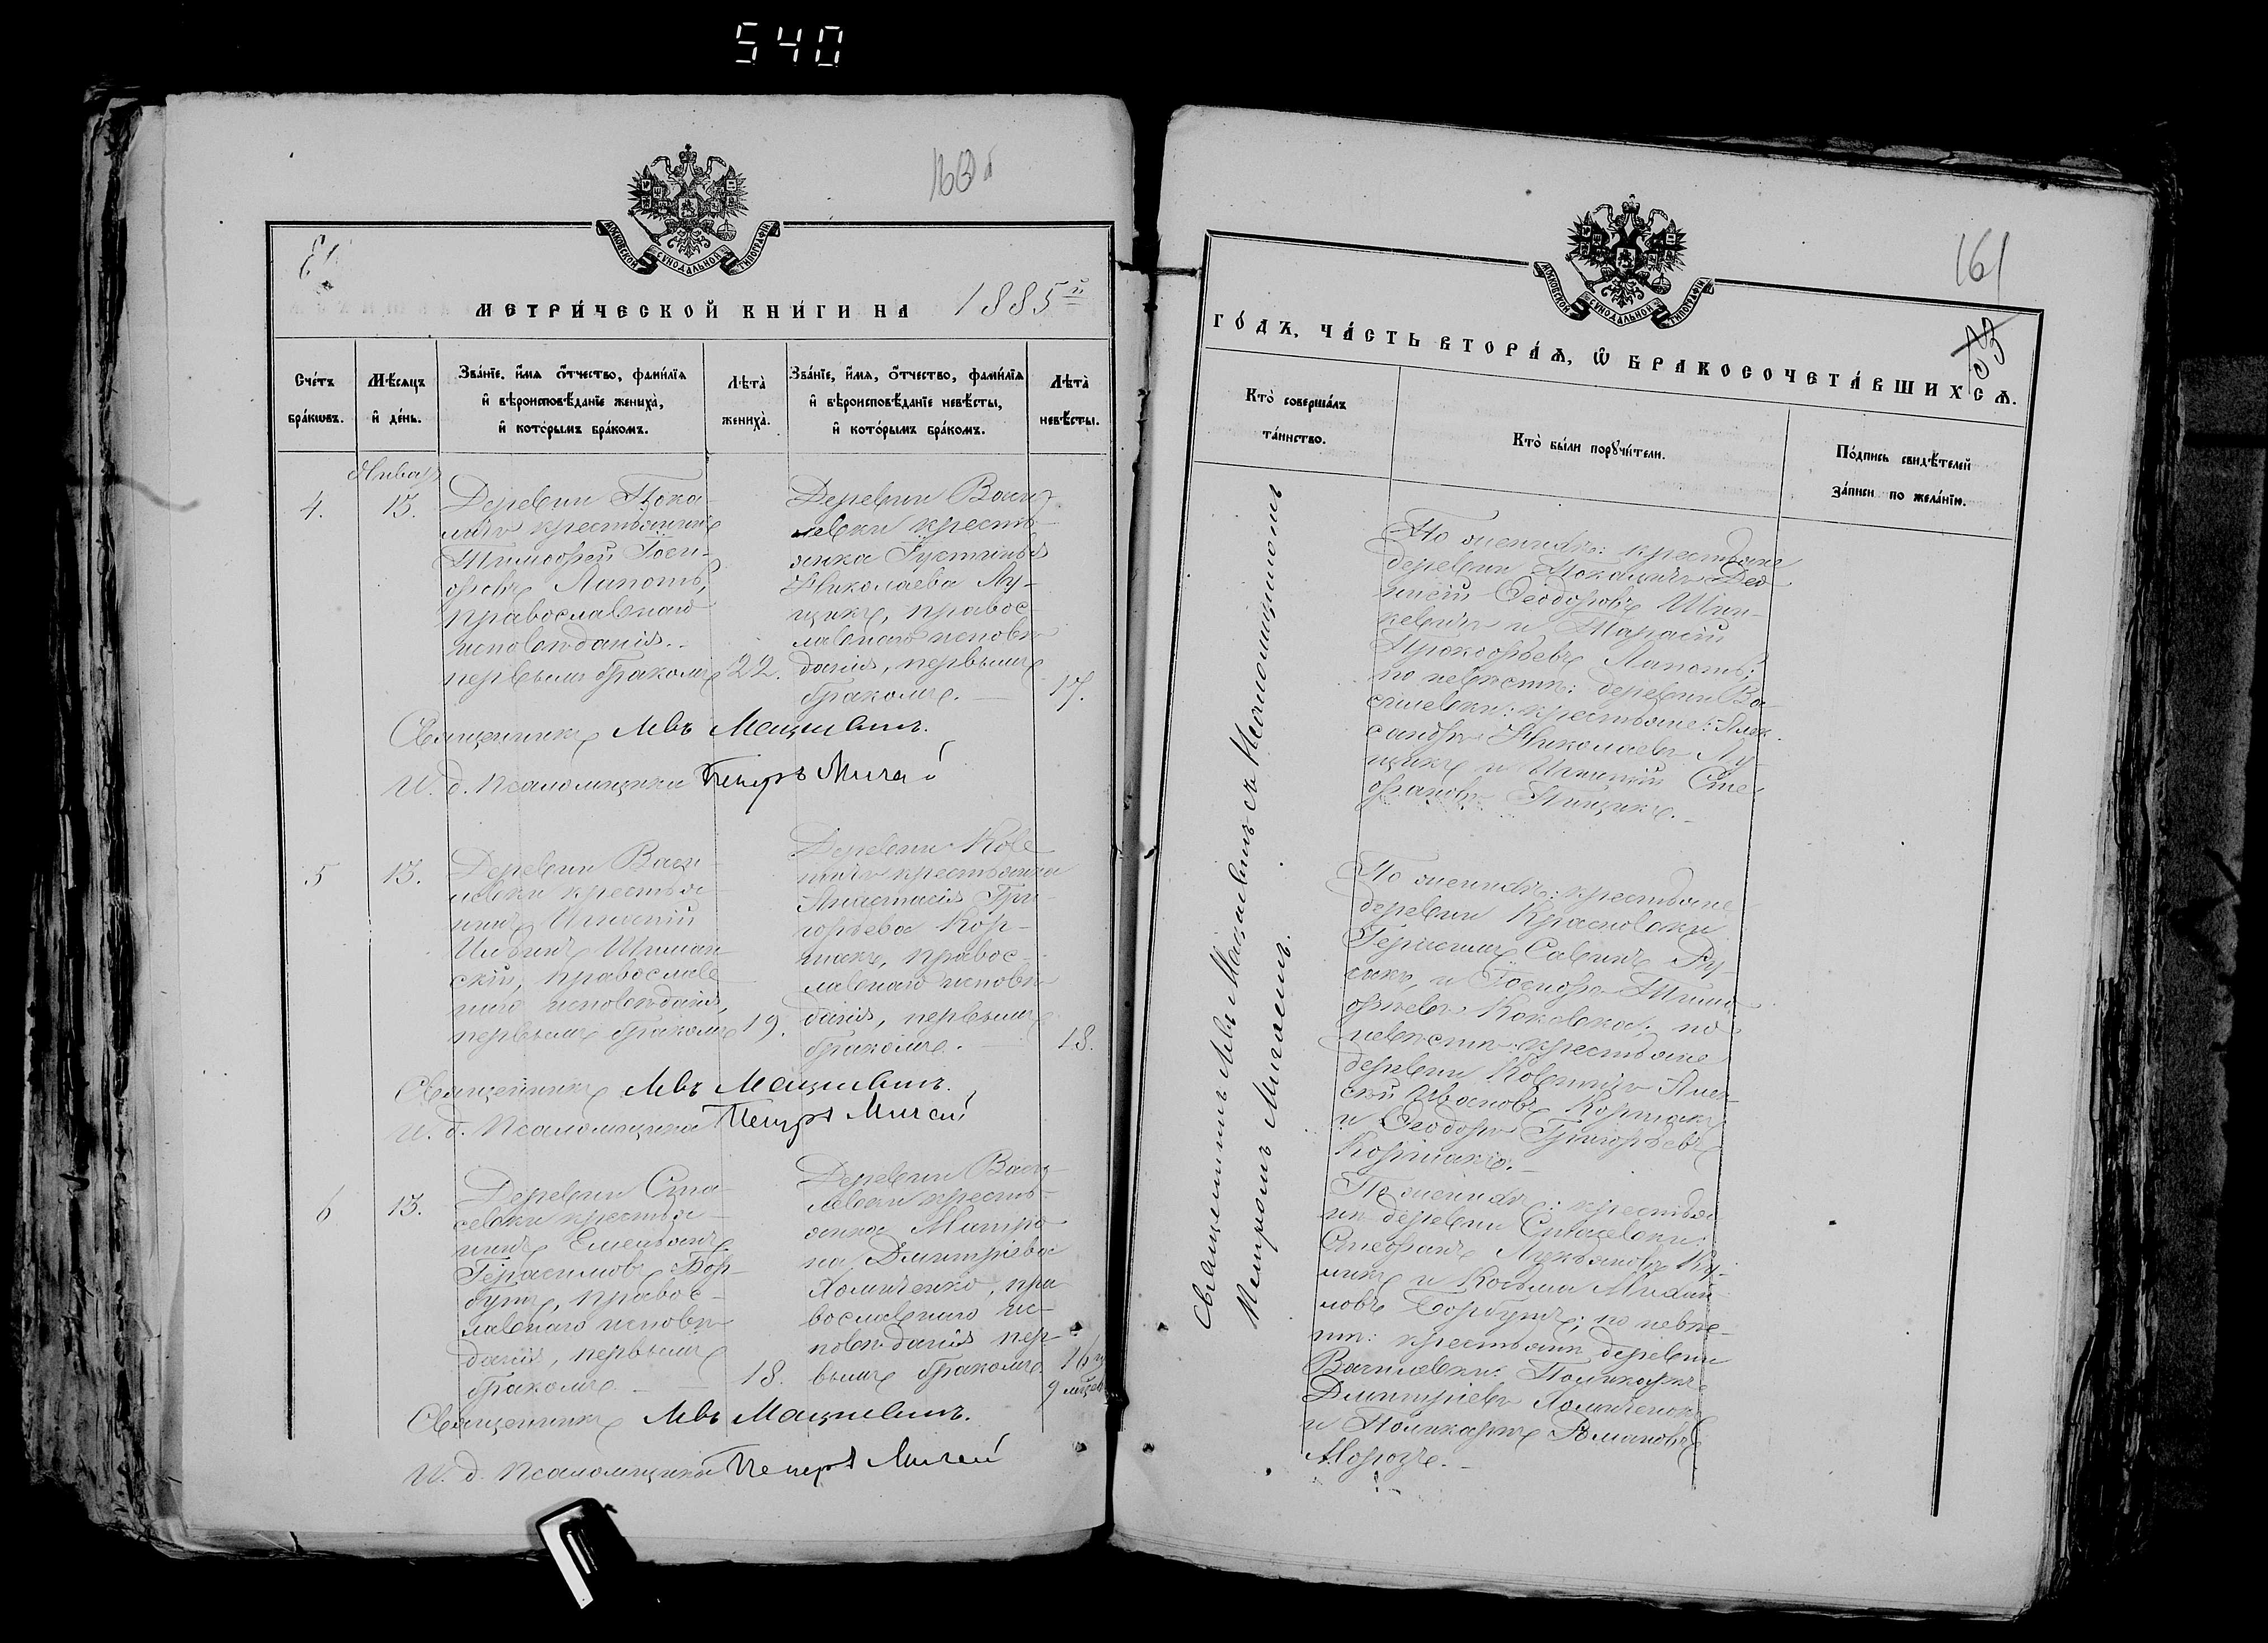 540
160б
МОСКОВСКОЙ СѴНОДАЛЬНОЙ ТИПОГРАФІИ
МЕТРИ́ЧЕСКОЙ КНИ́ГИ НА 1885й
Сче́тъ бра́кѡвъ.
Мѣ́сяцъ и҆ де́нь.
Зва́нїе, и҆́мя ѻ҆́тчество, фами́лїя
и҆ вѣроисповѣ́данїе жениха̀,
и҆ кото́рымъ бра́комъ.
Лѣта̀ жениха̀.
Зва́нїе, и҆́мя, ѻ҆́тчество, фами́лїя
и҆ вѣроисповѣ́данїе невѣ́сты,
и҆ кото́рымъ бра́комъ.
Лѣта̀ невѣ́сты.
Январь
4.
13.
Деревни Пока-
крестьянинъ
Тимофей Іоси-
фовъ Лапоть,
православнаго
исповѣданія.
первымъ бракомъ
22.
Деревни Васи-
левки кресть-
янка Густинья
Николаева Лу-
щикъ, правос-
лавнаго исповѣ
данія, первымъ
бракомъ.
17.
Священникъ Левъ Мацкевичъ.
И. д. Псаломщика Петръ Мигай
5
13.
Деревни Васи-
левки крестья
нинъ Игнатій
Ильинъ
скій, православ
наго исповѣданія,
первымъ бракомъ
19.
Деревни
крестьянка
Анастасія Гри-
горьева Кор-
шакъ, правос-
лавнаго исповѣ
данія, первымъ
бракомъ.
18.
Священникъ Левъ Мацкевичъ.
И. д. Псаломщика Петръ Мигай
6
13.
Деревни Ста-
севки крестья-
нинъ Емельянъ
Герасимовъ Бор-
бутъ, правос-
лавнаго исповѣ
данія, первымъ
бракомъ
18.
Деревни Васи-
левки кресть-
янка Матро
на Дмитріева
Хомиченко, пра
вославнаго ис-
повѣданія пер
вымъ бракомъ.
16 и
9 мѣсяц
Священникъ Левъ Мацкевичъ.
И. д. Псаломщика Петръ Мигай
161
МОСКОВСКОЙ СѴНОДАЛЬНОЙ ТИПОГРАФІИ
ГО́ДЪ, ЧА́СТЬ ВТОРА́Я, Ѽ БРАКОСОЧЕТА́ВШИХСЯ.
Кто̀ соверша́лъ та́инство.
Кто̀ бы́ли порꙋчи́тели.
По́дпись свидѣ́телей за́писи по жела́нїю.
Священникъ Левъ Мацкевичъ съ Псаломщикомъ
Петромъ Мигаемъ.
По женихѣ: крестьяне
деревни Део-
нисій Ѳеодоровъ
и Тарасій
Прокофьевъ Лапоть;
по невѣстѣ: деревни Ва-
силевки: крестьяне: Алек-
сандръ Николаевъ Лу-
щикъ и Игнатій Сте-
фановъ Пищикъ.
По женихѣ: крестьяне
деревни Красновки
Герасимъ Савинъ Ру-
сакъ, и Іосифъ Тимо-
фѣевъ Коховка; по
невѣстѣ: крестьяне
деревни Алек-
сѣй Ивановъ Коршакъ
и Ѳеодоръ Григорьевъ
Коршакъ.
По женихѣ: крестья
не деревни Стасевки:
Стефанъ Лукьяновъ Ку-
ликъ и Косьма Михай
ловъ Борбутъ; по невѣс-
тѣ: крестьяне деревни
Василевки: Поликарпъ
Дмитріевъ Хомиченко
и Поликарпъ Романовъ
Морозъ.